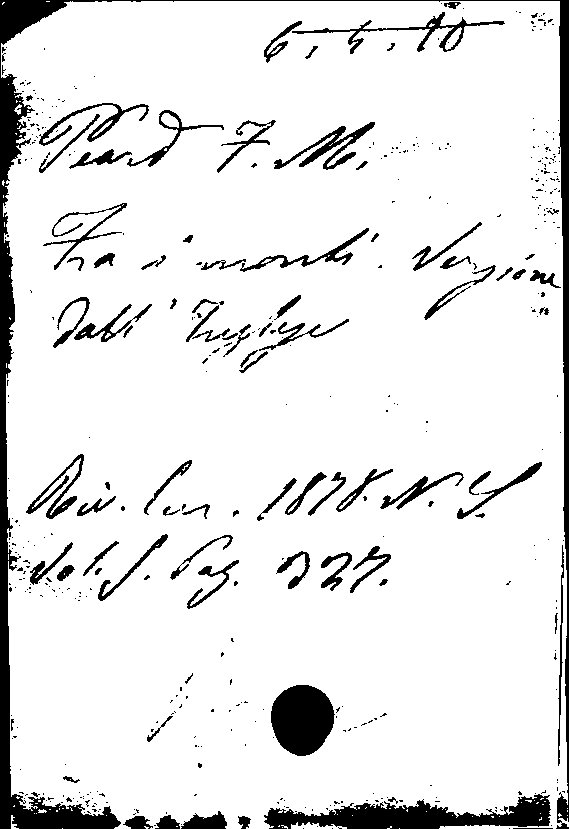 6.4.10
Peard F. M.
Fra i monti. Versione
dall' Inglese
Riv. Eur. 1878. N. S.
Vol. 5. Pag. 327.